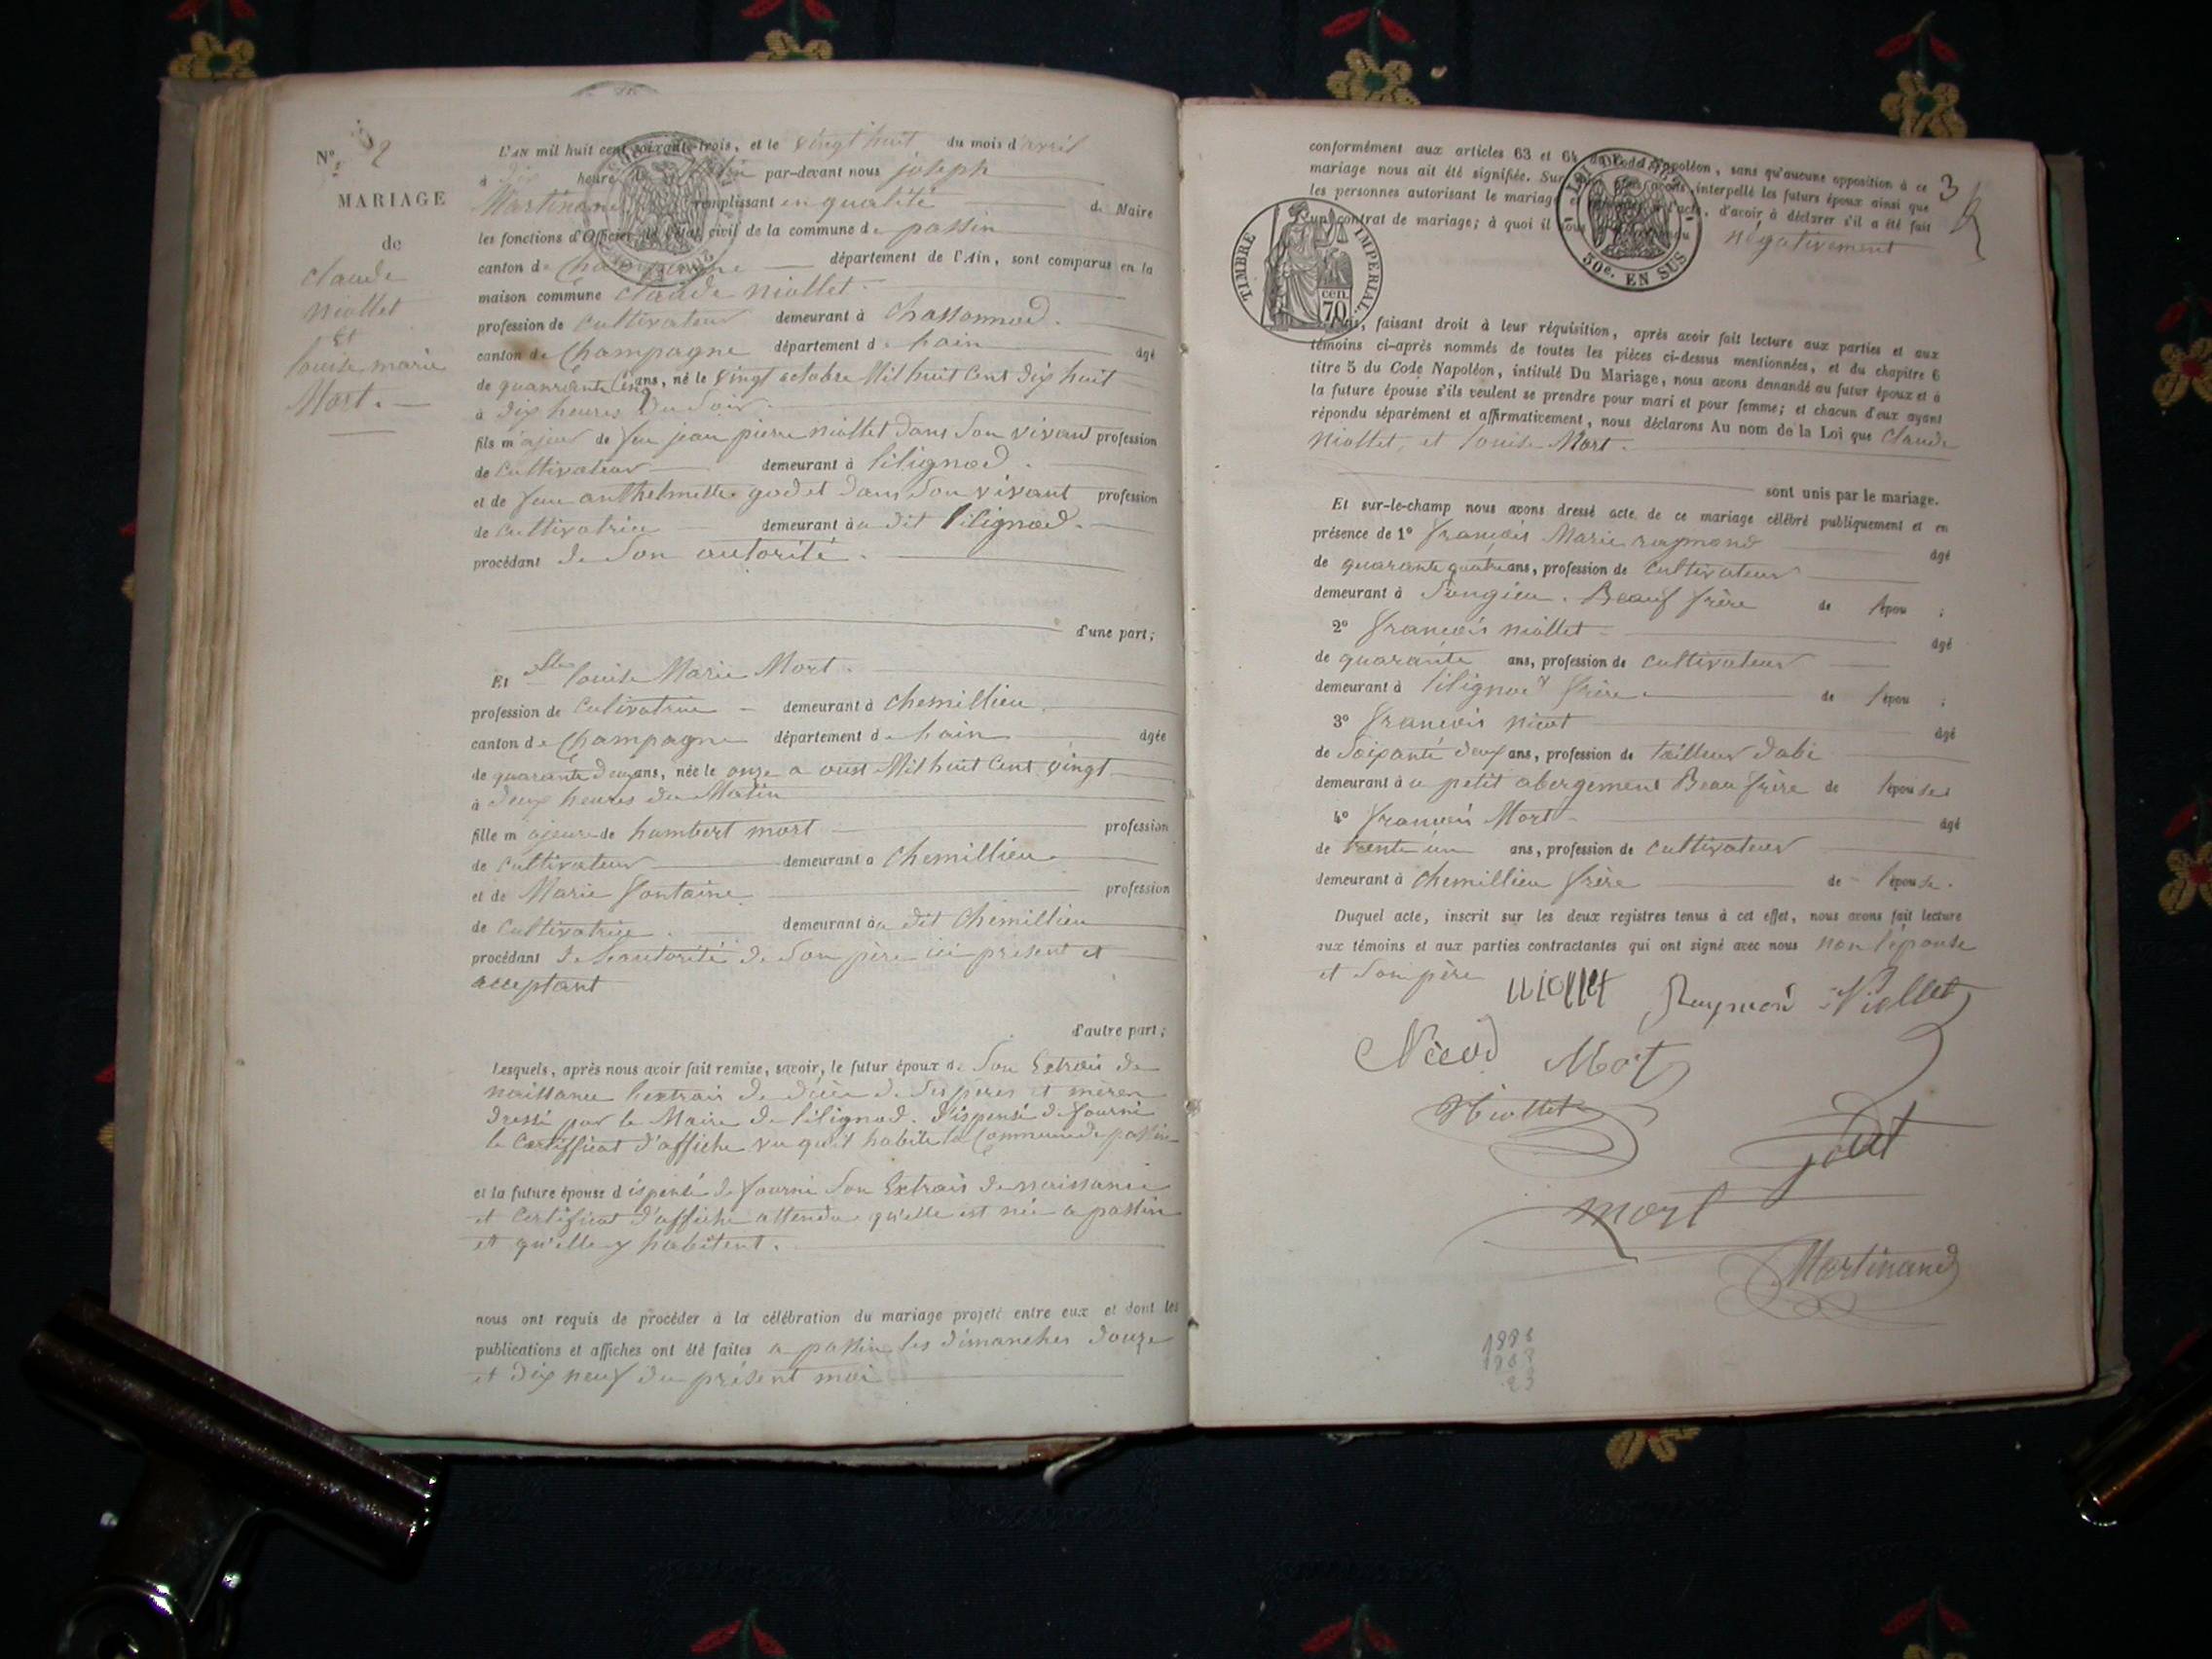 N° 2
MARIAGE
de
claude
niollet
et
louise marie
Mort.
L'AN mil huit cent soixante-trois, et le vingt huit du mois d'avril
à dix heures du Matin par-devant nous joseph
Martinand remplissant en qualité de Maire
les fonctions d'Officier de l'état civil de la commune de passin
canton de Champagne département de l'Ain, sont comparus en la
maison commune claude niollet
profession de cultivateur demeurant à Chassonnod.
canton de Champagne département de hain âgé
de quarante ans, né le vingt octobre Mil huit Cent dix huit
à dix heures du Soir.
fils majeur de feu jean pierre niollet dans Son vivant profession
de cultivateur demeurant à lilignod.
et de feu anthelmette godet dans Son vivant profession
de cultivatrice demeurant à u dit lilignod.
procédant de Son autorité.
d'une part;
Et Slle louise Marie Mort.
profession de Cultivatrice demeurant à chemillieu.
canton de Champagne département de hain âgée
de quarante deux ans, née le onze a oust Mil huit Cent vingt
à deux heures du Matin
fille majeure de humbert mort profession
de cultivateur demeurant à Chemillieu
et de Marie fontaine profession
de Cultivatrice. demeurant à u dit Chemillieu
procédant de l'eautorité de Son père ici présent et
acceptant
d'autre part;
Lesquels, après nous avoir fait remise, savoir, le futur époux de Son Extrais de
naissance l'extrais de décè de Ses pères et mères
dressé par le Maire de lilignod. Dispensé de fourni
le Certifficat d'affiche vu qu'il habite la Commune de passin
et la future épouse dispensé de fourni Son Extrais de naissance
et Certificat d'affiche attendu qu'elle est née a passin
et qu'elle y habitent.
nous ont requis de procéder à la célébration du mariage projeté entre eux et dont les
publications et affiches ont été faites a passin les dimanches douze
et dix neuf du présent moi
3
conformément aux articles 63 et 64 du Code Napoléon, sans qu'aucune opposition à ce
mariage nous ait été signifiée. Sur quoi nous avons interpellé les futurs époux ainsi que
les personnes autorisant le mariage et l'acte, d'avoir à déclarer s'il a été fait
un contrat de mariage; à quoi il nous négativement
TIMBRE IMPERIAL
cen. 70
50c. EN SUS
Nous, faisant droit à leur réquisition, après avoir fait lecture aux parties et aux
témoins ci-après nommés de toutes les pièces ci-dessus mentionnées, et du chapitre 6
titre 5 du Code Napoléon, intitulé Du Mariage, nous avons demandé au futur époux et à
la future épouse s'ils veulent se prendre pour mari et pour femme; et chacun d'eux ayant
répondu séparément et affirmativement, nous déclarons Au nom de la Loi que Claude
niollet, et louise Mort.
sont unis par le mariage.
Et sur-le-champ nous avons dressé acte de ce mariage célébré publiquement et en
présence de 1° françois Marie raymond âgé
de quarante quatre ans, profession de Cultivateur
demeurant à Songieu. Beauf frère de l'épou ;
2° françois niollet âgé
de quarante ans, profession de cultivateur
demeurant à lilignod frère de l'épou ;
3° françois nicot âgé
de Soixante deux ans, profession de tailleur dabi
demeurant à u petit abergement Beau frère de l'épouse
4° françois Mort âgé
de trente un ans, profession de Cultivateur
demeurant à Chemillieu frère de l'épouse.
Duquel acte, inscrit sur les deux registres tenus à cet effet, nous avons fait lecture
aux témoins et aux parties contractantes qui ont signé avec nous non l'épouse
et Son père niollet Raymond Niollet
Nicod Mort
Niollet
Godet
mort
Martinand